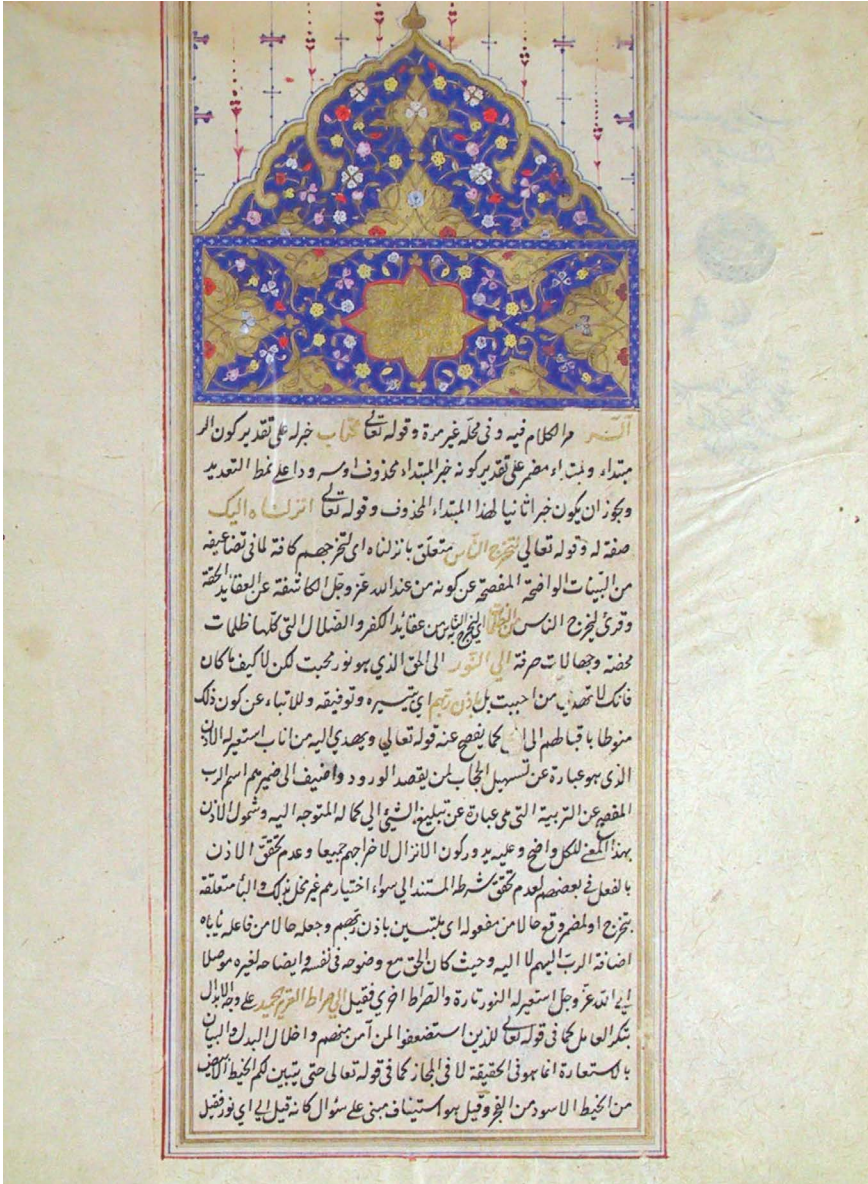 آلــر مر الكلام فيه و فى محله غير مرة و قوله تعالى كتاب خبر له على تقدير كون الر
مبتداء و لمبتداء مضمر على تقدير كونه خبر المبتداء محذوف او مسرودا على نمط التعديد
و يجوز ان يكون خبرا ثانيا لهذا المبتداء المحذوف و قوله تعالى انزلناه اليك
صفة له و قوله تعالى لتخرج الناس متعلق بانزلناه اى لتخرجهم كافة لما فى تضاعيفه
من البينات الواضحة المفصحة عن كونه من عند الله عز و جل الكاشفة عن العقايد الحقة
و قرئ ليخرج الناس من الظلمات اى ليخرج الناس من عقائد الكفر و الضلال التى كلها ظلمات
محضة و جهالات صرفة الى النور الى الحق الذي هو نور محبت لكن لا كيف ما كان
فانك لا تهدى من احببت بل باذن ربهم اى بتيسيره و توفيقه و للانباء عن كون ذلك
منوطا باقبالهم الى كما يفصح عنه قوله تعالى و يهدي اليه من اناب استعير له الاذن
الذى هو عبارة عن تسهيل الحجاب لمن يقصد الورود و اضيف الى ضميرهم اسم الرب
المفصح عن التربية التى هى عبارة عن تبليغ الشيئ الى كماله المتوجه اليه و شمول الاذن
بهذا المعنى للكل واضح و عليه يدور كون الانزال لاخراجهم جميعا و عدم تحقق الاذن
بالفعل فى بعضهم لعدم تحقق شرطه المستند الى سواء اختيارهم غير مخل بذلك و الباء متعلقة
بتخرج او لمضمر وقع حالا من مفعوله اى ملتبسين باذن ربهم و جعله حالا من فاعله ياباه
اضافة الرب اليهم لا اليه و حيث كان الحق مع وضوحه فى نفسه و ايضاحه لغيره موصلا
الى الله عز و جل استعير له النور تارة و الصراط اخرى فقيل الى صراط العزيز الحميد على وجه الابدال
بتكرر العامل كما فى قوله تعالى للذين استضعفوا لمن آمن منهم و اخلال البدل و البيان
بالاستعارة انما هو فى الحقيقة لا فى المجاز كما فى قوله تعالى حتى يتبين لكم الخيط الابيض
من الخيط الاسود من الفجر و قيل هو استيناف مبنى على سؤال كانه قيل الى اى نور فقيل